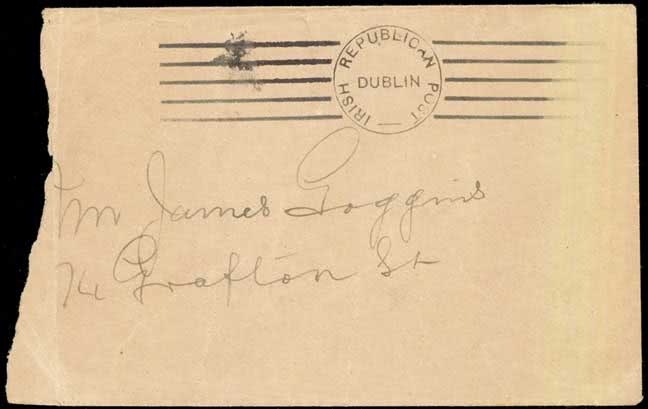 IRISH REPUBLICAN POST
DUBLIN
Mr James Goggins
74 Grafton St